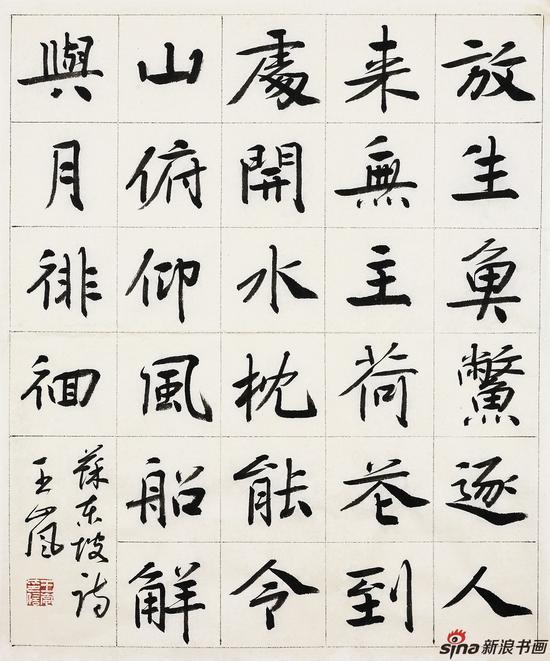 放生魚鱉逐人
来無主荷花到
處開水枕能令
山俯仰風船解
與月徘徊
蘇东坡诗
王岚
sina新浪书画